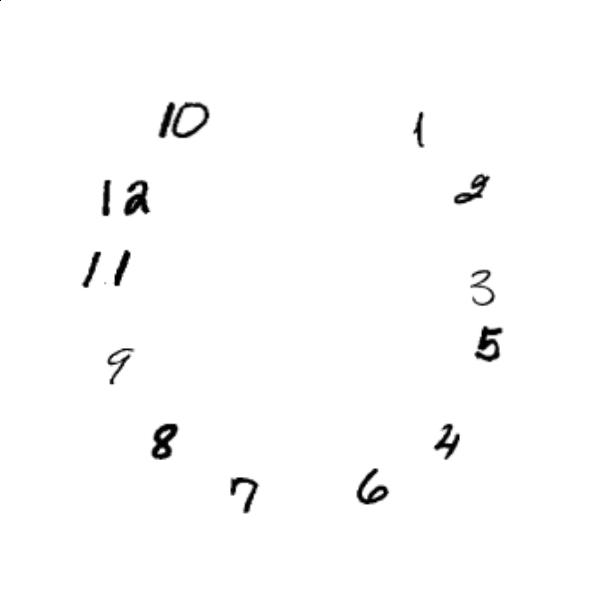 10 1
12 2
11 3
5
9
8 4
7 6